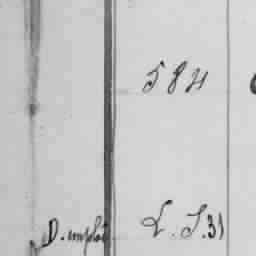 584
D. employé L. S. 31